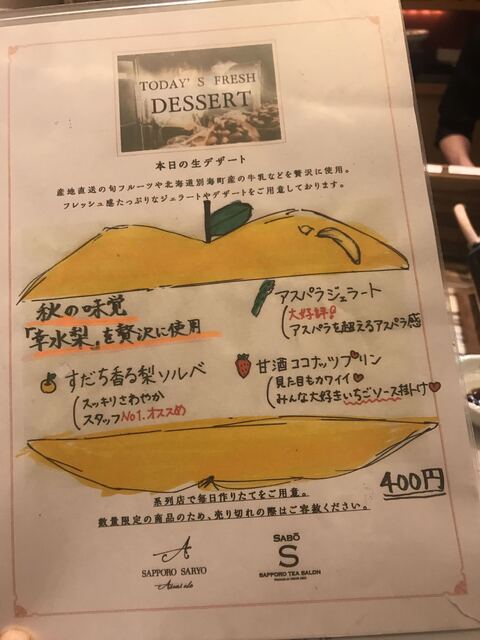 TODAY'S FRESH
DESSERT
本日の生デザート
産地直送の旬フルーツや北海道別海町産の牛乳などを贅沢に使用。
フレッシュ感たっぷりなジェラートやデザートをご用意しております。
秋の味覚
「幸水梨」を贅沢に使用
アスパラジェラート
大好評!
アスパラを超えるアスパラ感
すだち香る梨ソルベ
スッキリさわやか
スタッフNo1.オススメ
甘酒ココナッツプリン
見た目もカワイイ♥
みんな大好きいちごソース掛け♥
400円
系列店で毎日作りたてをご用意。
数量限定の商品のため、売り切れの際はご容赦ください。
A
SAPPORO SARYO
SABŌ
S
SAPPORO TEA SALON